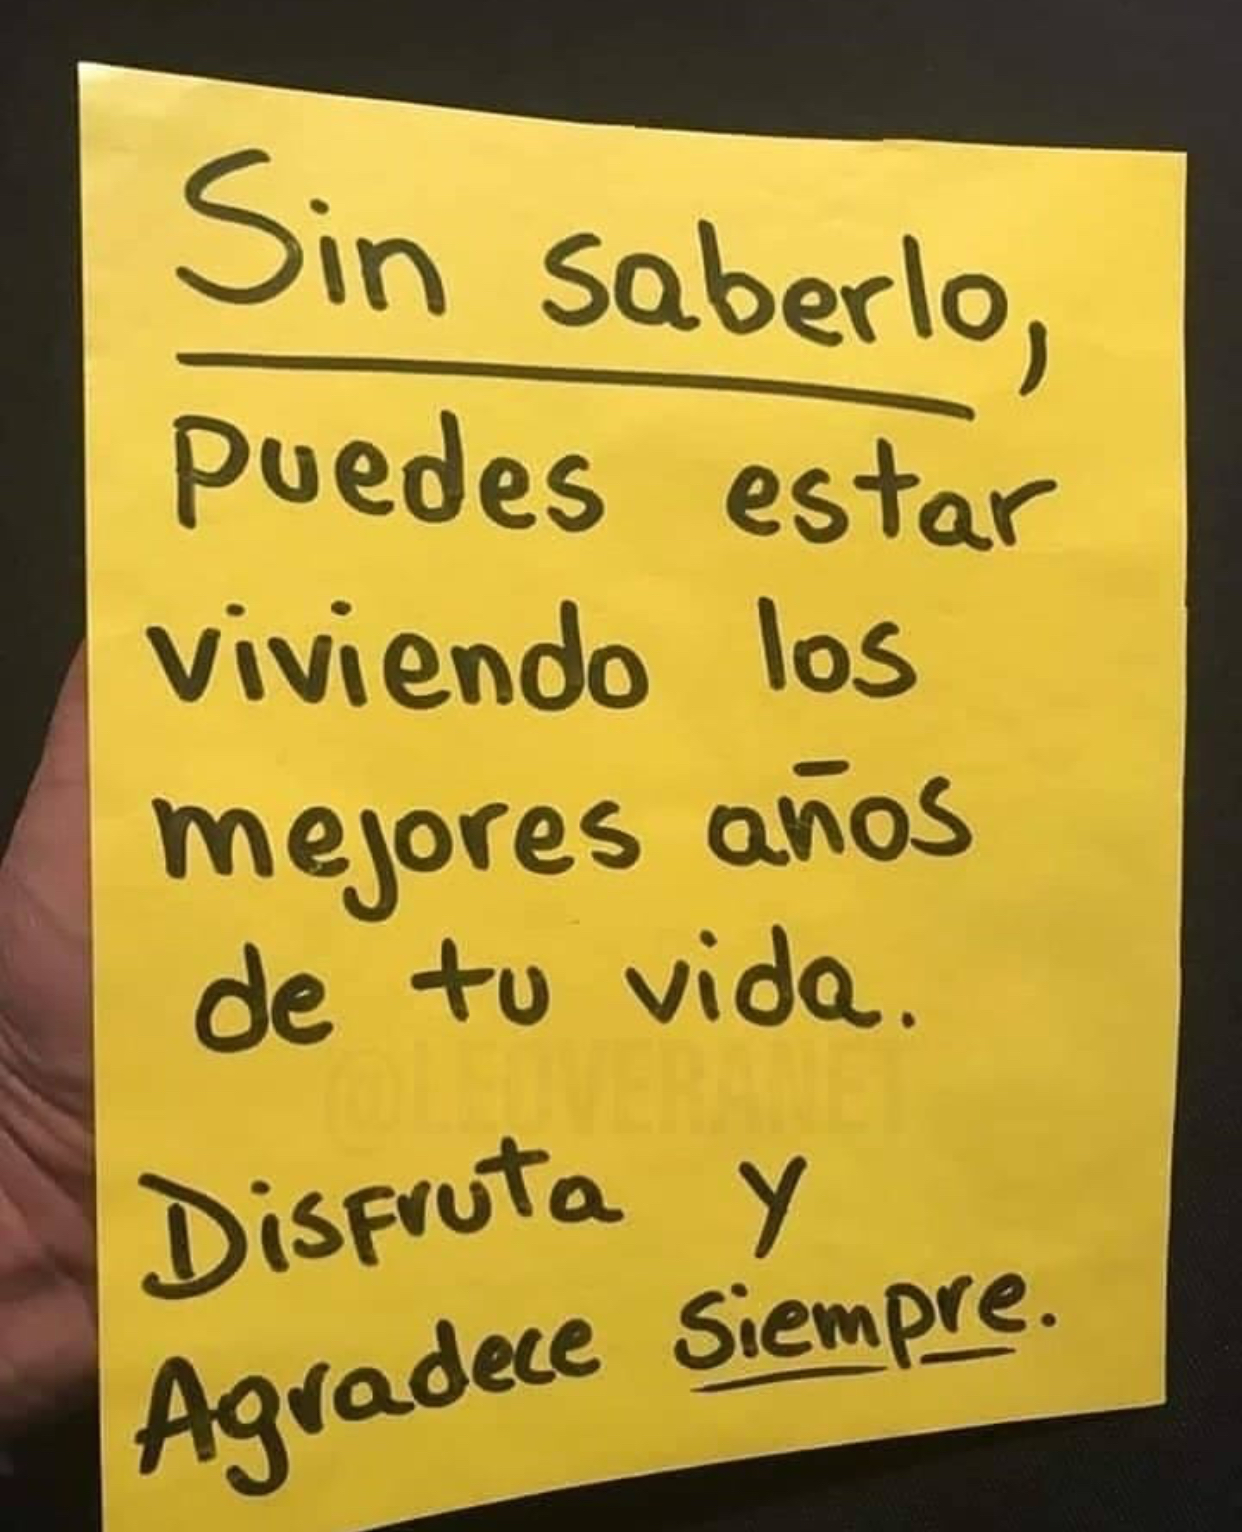 Sin saberlo,
puedes estar
viviendo los
mejores años
de tu vida.
@LEOVERANET
Disfruta y
Agradece siempre.